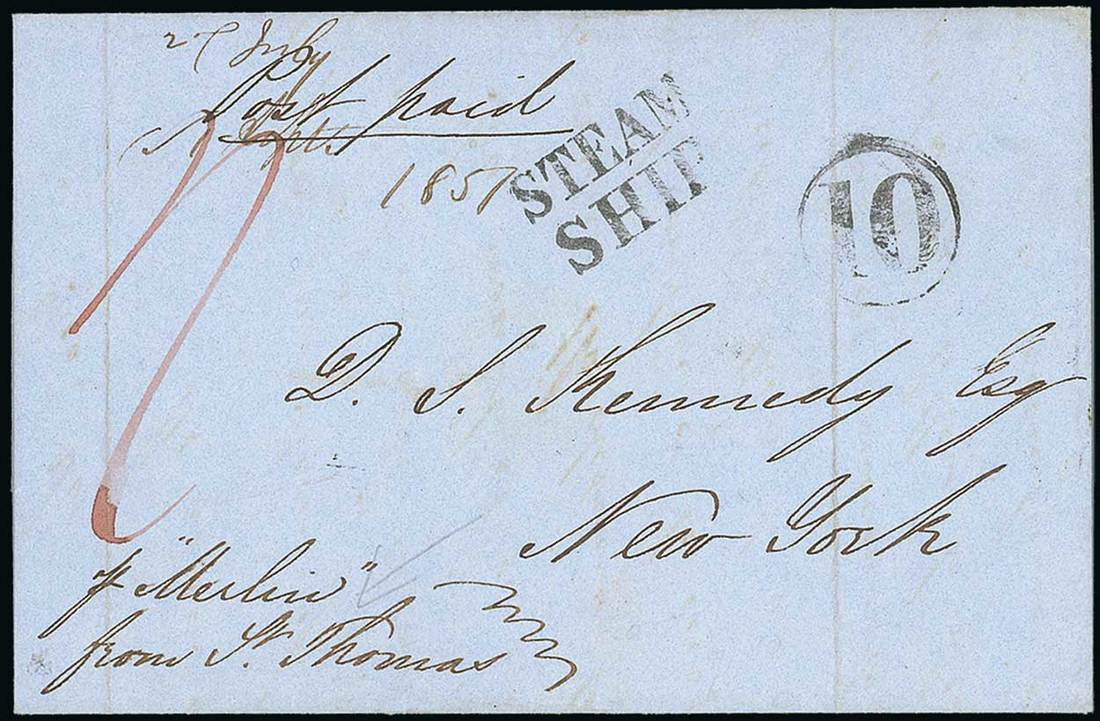 27 July
Post paid
Septr
1851
STEAM
SHIP
10
D. S. Kennedy Esq
New York
p "Merlin"
from St. Thomas